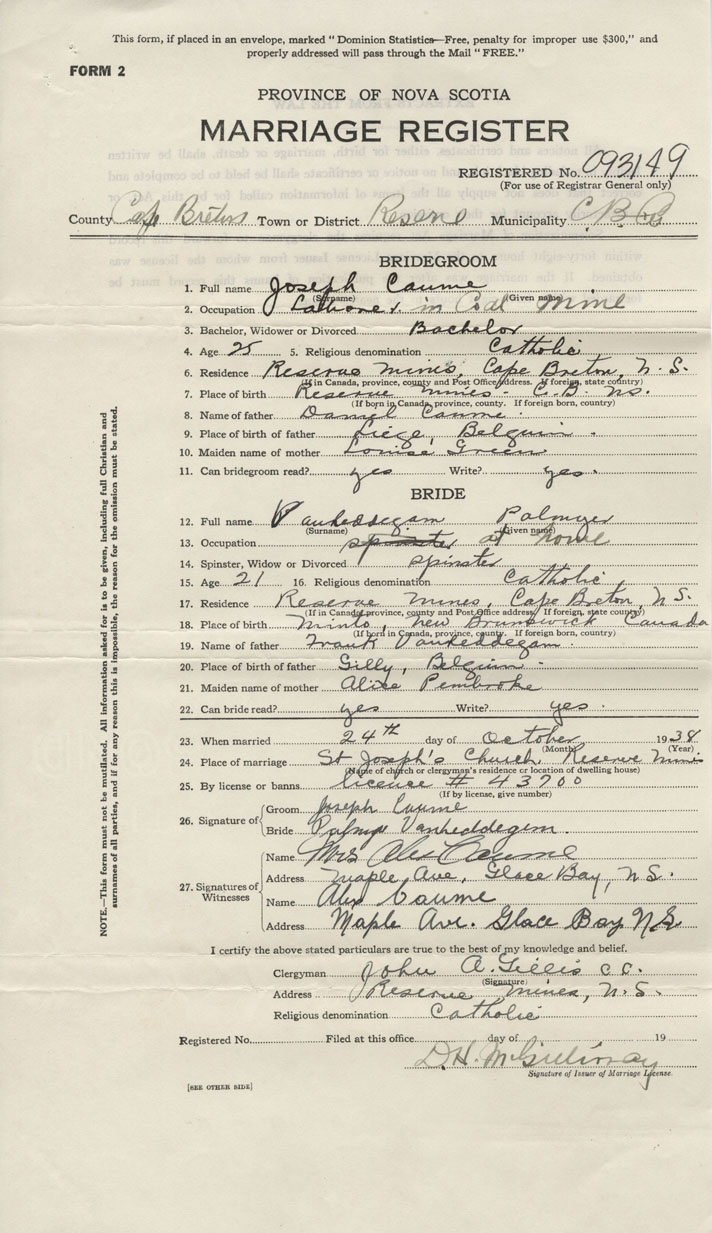 This form, if placed in an envelope, marked "Dominion Statistics—Free, penalty for improper use $300," and
properly addressed will pass through the Mail "FREE."
FORM 2
PROVINCE OF NOVA SCOTIA
MARRIAGE REGISTER
REGISTERED No. 093149
(For use of Registrar General only)
County Cape Breton Town or District Reserve Municipality C.B.Co
BRIDEGROOM
1. Full name Joseph Caume
(Surname) (Given name)
2. Occupation Laborer in Coal Mine
3. Bachelor, Widower or Divorced Bachelor
4. Age 25 5. Religious denomination Catholic
6. Residence Reserve Mines, Cape Breton, N. S.
(If in Canada, province, county and Post Office address. If foreign, state country)
7. Place of birth Reserve Mines - C.B. NS.
(If born in Canada, province, county. If foreign born, country)
8. Name of father Daniel Caume
9. Place of birth of father Liege, Belguim.
10. Maiden name of mother Louise Green
11. Can bridegroom read? yes Write? yes.
BRIDE
12. Full name Vanheddegam Palmyer
(Surname) (Given name)
13. Occupation spinster at home
14. Spinster, Widow or Divorced spinster
15. Age 21 16. Religious denomination Catholic
17. Residence Reserve Mines, Cape Breton, N.S.
(If in Canada, province, county and Post Office address. If foreign, state country)
18. Place of birth Minto, New Brunswick Canada
(If born in Canada, province, county. If foreign born, country)
19. Name of father Frank Vanheddegam.
20. Place of birth of father Gilly, Belgium.
21. Maiden name of mother Alixe Pembroke
22. Can bride read? yes Write? yes.
23. When married 24th day of October 1938
(Month) (Year)
24. Place of marriage St Joseph's Church Reserve Mines
(Name of church or clergyman's residence or location of dwelling house)
25. By license or banns license # 43700
(If by license, give number)
26. Signature of Groom Joseph Caume
Bride Palmyr Vanheddegem.
27. Signatures of Witnesses Name Mrs Alex Caume
Address Maple Ave, Glace Bay, N.S.
Name Alex Caume
Address Maple Ave. Glace Bay N.S
I certify the above stated particulars are true to the best of my knowledge and belief.
Clergyman John A. Gillis C.C.
(Signature)
Address Reserve Mines, N.S.
Religious denomination Catholic
Registered No. Filed at this office day of 19
D.H. McGillivray
Signature of Issuer of Marriage License.
[SEE OTHER SIDE]
NOTE.—This form must not be mutilated. All information asked for is to be given, including full Christian and
surnames of all parties, and if for any reason this is impossible, the reason for the omission must be stated.